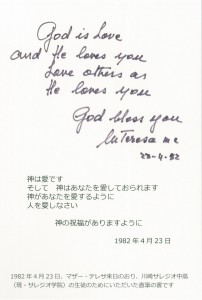 God is Love
and He loves you
Love others as
He loves you
God bless you
M Teresa mc
23-4-82
神は愛です
そして 神はあなたを愛しておられます
神があなたを愛するように
人を愛しなさい
神の祝福がありますように
1982年4月23日
1982年4月23日、マザー・テレサ来日のおり、川崎サレジオ中高
(現・サレジオ学院)の生徒のためにいただいた直筆の書です